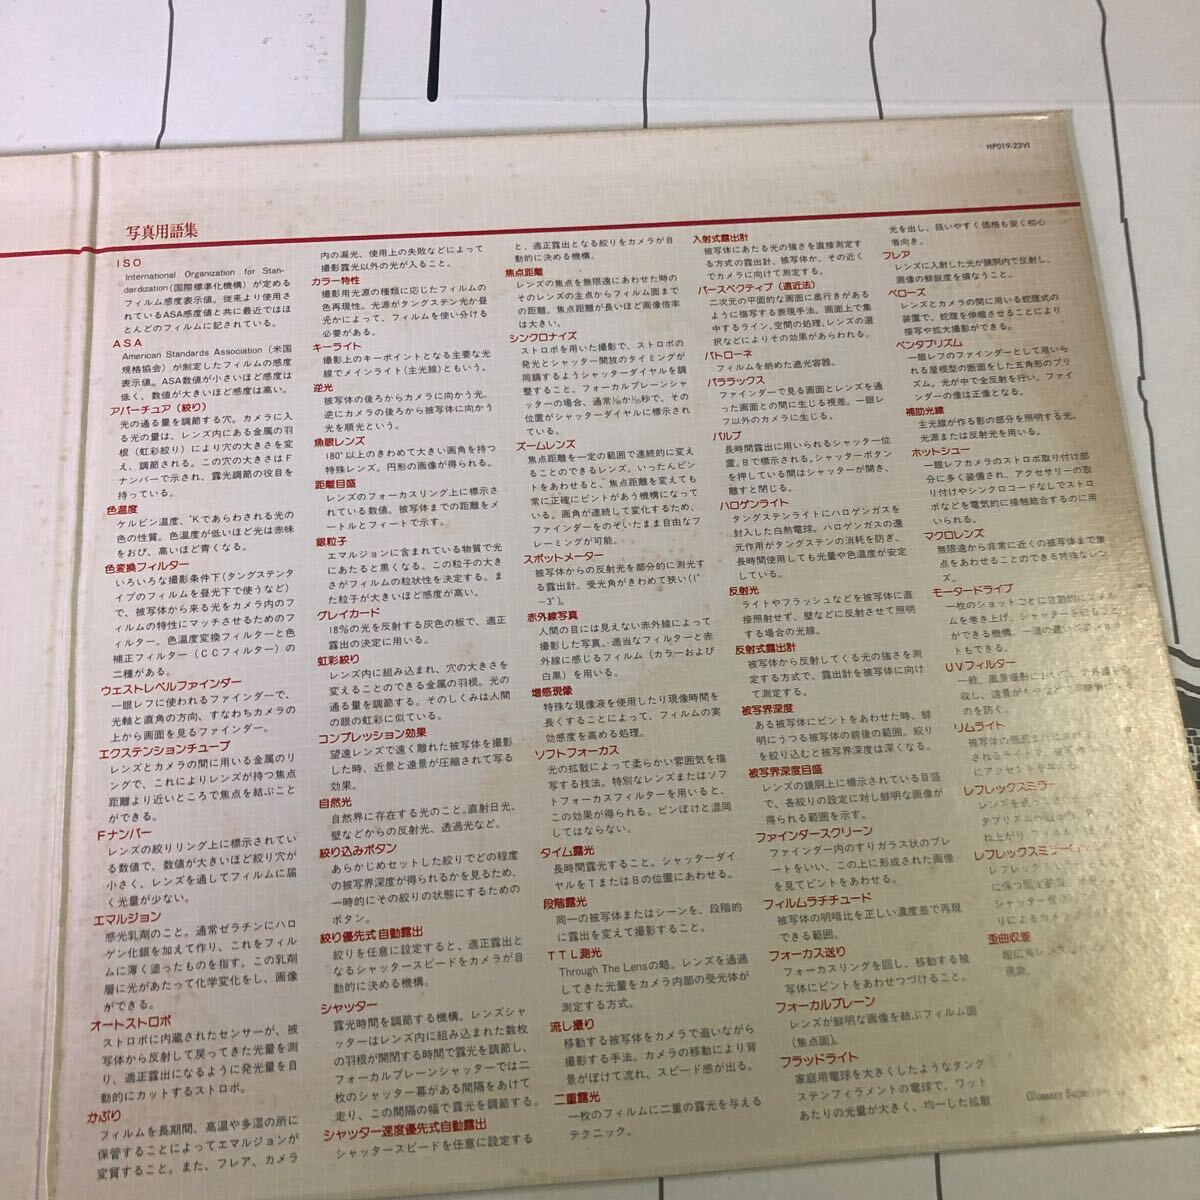 HP019-23VI
写真用語集
ISO
International Organization for Stan-
dardization(国際標準化機構)が定める
フィルム感度表示値。従来より使用さ
れているASA感度値と共に最近ではほ
とんどのフィルムに記されている。
ASA
American Standards Association (米国
規格協会)が制定したフィルムの感度
表示値。ASA数値が小さいほど感度は
低く、数値が大きいほど感度は高い。
アパーチュア(絞り)
光の通る量を調節する穴。カメラに入
る光の量は、レンズ内にある金属の羽
根(虹彩絞り)により穴の大きさを変
え、調節される。この穴の大きさはF
ナンバーで示され、露光調節の役目を
持っている。
色温度
ケルビン温度、°Kであらわされる光の
色の性質。色温度が低いほど光は赤味
をおび、高いほど青くなる。
色変換フィルター
いろいろな撮影条件下(タングステンタ
イプのフィルムを昼光下で使うなど)
で、被写体から来る光をカメラ内のフ
ィルムの特性にマッチさせるためのフ
ィルター。色温度変換フィルターと色
補正フィルター(CCフィルター)の
二種がある。
ウェストレベルファインダー
一眼レフに使われるファインダーで、
光軸と直角の方向、すなわちカメラの
上から画面を見るファインダー。
エクステンションチューブ
レンズとカメラの間に用いる金属のリ
ングで、これによりレンズが持つ焦点
距離より近いところで焦点を結ぶこと
ができる。
Fナンバー
レンズの絞りリング上に標示されてい
る数値で、数値が大きいほど絞り穴が
小さく、レンズを通してフィルムに届
く光量が少ない。
エマルジョン
感光乳剤のこと。通常ゼラチンにハロ
ゲン化銀を加えて作り、これをフィル
ムに薄く塗ったものを指す。この乳剤
層に光があたって化学変化をし、画像
ができる。
オートストロボ
ストロボに内蔵されたセンサーが、被
写体から反射して戻ってきた光量を測
り、適正露出になるように発光量を自
動的にカットするストロボ。
かぶり
フィルムを長期間、高温や多湿の所に
保管することによってエマルジョンが
変質すること。また、フレア、カメラ
内の漏光、使用上の失敗などによって
撮影露光以外の光が入ること。
カラー特性
撮影用光源の種類に応じたフィルムの
色再現性。光源がタングステン光か昼
光かによって、フィルムを使い分ける
必要がある。
キーライト
撮影上のキーポイントとなる主要な光
線でメインライト(主光線)ともいう。
逆光
被写体の後ろからカメラに向かう光。
逆にカメラの後ろから被写体に向かう
光を順光という。
魚眼レンズ
180°以上のきわめて大きい画角を持つ
特殊レンズ。円形の画像が得られる。
距離目盛
レンズのフォーカスリング上に標示さ
れている数値。被写体までの距離をメ
ートルとフィートで示す。
銀粒子
エマルジョンに含まれている物質で光
にあたると黒くなる。この粒子の大き
さがフィルムの粒状性を決定する。ま
た粒子が大きいほど感度が高い。
グレイカード
18%の光を反射する灰色の板で、適正
露出の決定に用いる。
虹彩絞り
レンズ内に組み込まれ、穴の大きさを
変えることのできる金属の羽根。光の
通る量を調節する。そのしくみは人間
の眼の虹彩に似ている。
コンプレッション効果
望遠レンズで遠く離れた被写体を撮影
した時、近景と遠景が圧縮されて写る
効果。
自然光
自然界に存在する光のこと。直射日光、
壁などからの反射光、透過光など。
絞り込みボタン
あらかじめセットした絞りでどの程度
の被写界深度が得られるかを見るため、
一時的にその絞りの状態にするための
ボタン。
絞り優先式自動露出
絞りを任意に設定すると、適正露出と
なるシャッタースピードをカメラが自
動的に決める機構。
シャッター
露光時間を調節する機構。レンズシャ
ッターはレンズ内に組み込まれた数枚
の羽根が開閉する時間で露光を調節し、
フォーカルプレーンシャッターでは二
枚のシャッター幕がある間隔をあけて
走り、この間隔の幅で露光を調節する。
シャッター速度優先式自動露出
シャッタースピードを任意に設定する
と、適正露出となる絞りをカメラが自
動的に決める機構。
焦点距離
レンズの焦点を無限遠にあわせた時の
そのレンズの主点からフィルム面まで
の距離。焦点距離が長いほど画像倍率
は大きい。
シンクロナイズ
ストロボを用いた撮影で、ストロボの
発光とシャッター開放のタイミングが
同調するようシャッターダイヤルを調
整すること。フォーカルプレーンシャ
ッターの場合、通常1/60か1/125秒で、その
位置がシャッターダイヤルに標示され
ている。
ズームレンズ
焦点距離を一定の範囲で連続的に変え
ることのできるレンズ。いったんピン
トをあわせると、焦点距離を変えても
常に正確にピントがあう機構になって
いる。画角が連続して変化するため、
ファインダーをのぞいたまま自由なフ
レーミングが可能。
スポットメーター
被写体からの反射光を部分的に測光す
る露出計。受光角がきわめて狭い(1°
～3°)。
赤外線写真
人間の目には見えない赤外線によって
撮影した写真。適当なフィルターと赤
外線に感じるフィルム(カラーおよび
白黒)を用いる。
増感現像
特殊な現像液を使用したり現像時間を
長くすることによって、フィルムの実
効感度を高める処理。
ソフトフォーカス
光の拡散によって柔らかい雰囲気を描
写する技法。特別なレンズまたはソフ
トフォーカスフィルターを用いると、
この効果が得られる。ピンぼけと混同
してはならない。
タイム露光
長時間露光すること。シャッターダイ
ヤルをTまたはBの位置にあわせる。
段階露光
同一の被写体またはシーンを、段階的
に露出を変えて撮影すること。
TTL測光
Through The Lensの略。レンズを通過
してきた光量をカメラ内部の受光体が
測定する方式。
流し撮り
移動する被写体をカメラで追いながら
撮影する手法。カメラの移動により背
景がぼけて流れ、スピード感が出る。
二重露光
一枚のフィルムに二重の露光を与える
テクニック。
入射式露出計
被写体にあたる光の強さを直接測定す
る方式の露出計。被写体か、その近く
でカメラに向けて測定する。
パースペクティブ(遠近法)
二次元の平面的な画面に奥行きがある
ように描写する表現手法。画面上で集
中するライン、空間の処理、レンズの選
択などによりその効果があらわれる。
パトローネ
フィルムを納めた遮光容器。
パララックス
ファインダーで見る画面とレンズを通
った画面との間に生じる視差。一眼レ
フ以外のカメラに生じる。
バルブ
長時間露出に用いられるシャッター位
置。Bで標示される。シャッターボタン
を押している間はシャッターが開き、
離すと閉じる。
ハロゲンライト
タングステンライトにハロゲンガスを
封入した白熱電球。ハロゲンガスの還
元作用がタングステンの消耗を防ぎ、
長時間使用しても光量や色温度が安定
している。
反射光
ライトやフラッシュなどを被写体に直
接照射せず、壁などに反射させて照明
する場合の光線。
反射式露出計
被写体から反射してくる光の強さを測
定する方式で、露出計を被写体に向け
て測定する。
被写界深度
ある被写体にピントをあわせた時、鮮
明にうつる被写体の前後の範囲。絞り
を絞り込むと被写界深度は深くなる。
被写界深度目盛
レンズの鏡胴上に標示されている目盛
で、各絞りの設定に対し鮮明な画像が
得られる範囲を示す。
ファインダースクリーン
ファインダー内のすりガラス状のプレ
ートをいい、この上に形成された画像
を見てピントをあわせる。
フィルムラチチュード
被写体の明暗比を正しい濃度差で再現
できる範囲。
フォーカス送り
フォーカスリングを回し、移動する被
写体にピントをあわせつづけること。
フォーカルプレーン
レンズが鮮明な画像を結ぶフィルム面
(焦点面)。
フラッドライト
家庭用電球を大きくしたようなタング
ステンフィラメントの電球で、ワット
あたりの光量が大きく、均一した拡散
光を出し、扱いやすく価格も安く初心
者向き。
フレア
レンズに入射した光が鏡胴内で反射し、
画像の鮮鋭度を損なうこと。
ベローズ
レンズとカメラの間に用いる蛇腹式の
装置で、蛇腹を伸縮させることにより
接写や拡大撮影ができる。
ペンタプリズム
一眼レフのファインダーとして用いら
れる屋根型の断面をした五角形のプリ
ズム。光が中で全反射を行い、ファイ
ンダーの像は正像となる。
補助光線
主光線が作る影の部分を照明する光。
光源または反射光を用いる。
ホットシュー
一眼レフカメラのストロボ取り付け部
分に多く装備され、アクセサリーの取
り付けやシンクロコードなしでストロ
ボなどを電気的に接触結合するのに用
いられる。
マクロレンズ
無限遠から非常に近くの被写体まで焦
点をあわせることのできる特殊なレン
ズ。
モータードライブ
一枚のショットごとに自動的にフィル
ムを巻き上げ、シャッターを切ること
ができる機構。一連の速い
トもできる。
UVフィルター
一般、風景撮影において、
収し、遠景が
のを防ぐ。
リムライト
被写体の
されるライトで、被写体の
にアクセントを与える。
レフレックスミラー
レンズを
タプリズムへ
ね上がり、フィルム
レフレックスミラー
レフレックス
に保つ
シャッター
りによるカメラ
歪曲収差
超広角レンズ
現象。
Glossary